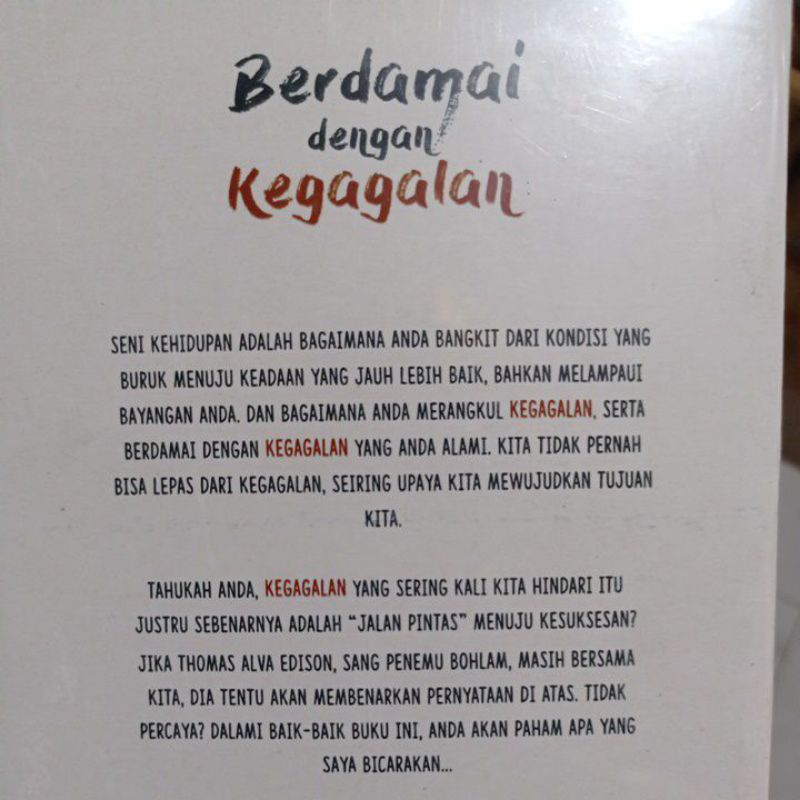 Berdamai
dengan
Kegagalan
SENI KEHIDUPAN ADALAH BAGAIMANA ANDA BANGKIT DARI KONDISI YANG
BURUK MENUJU KEADAAN YANG JAUH LEBIH BAIK, BAHKAN MELAMPAUI
BAYANGAN ANDA. DAN BAGAIMANA ANDA MERANGKUL KEGAGALAN, SERTA
BERDAMAI DENGAN KEGAGALAN YANG ANDA ALAMI. KITA TIDAK PERNAH
BISA LEPAS DARI KEGAGALAN, SEIRING UPAYA KITA MEWUJUDKAN TUJUAN
KITA.
TAHUKAH ANDA, KEGAGALAN YANG SERING KALI KITA HINDARI ITU
JUSTRU SEBENARNYA ADALAH “JALAN PINTAS” MENUJU KESUKSESAN?
JIKA THOMAS ALVA EDISON, SANG PENEMU BOHLAM, MASIH BERSAMA
KITA, DIA TENTU AKAN MEMBENARKAN PERNYATAAN DI ATAS. TIDAK
PERCAYA? DALAMI BAIK-BAIK BUKU INI, ANDA AKAN PAHAM APA YANG
SAYA BICARAKAN...